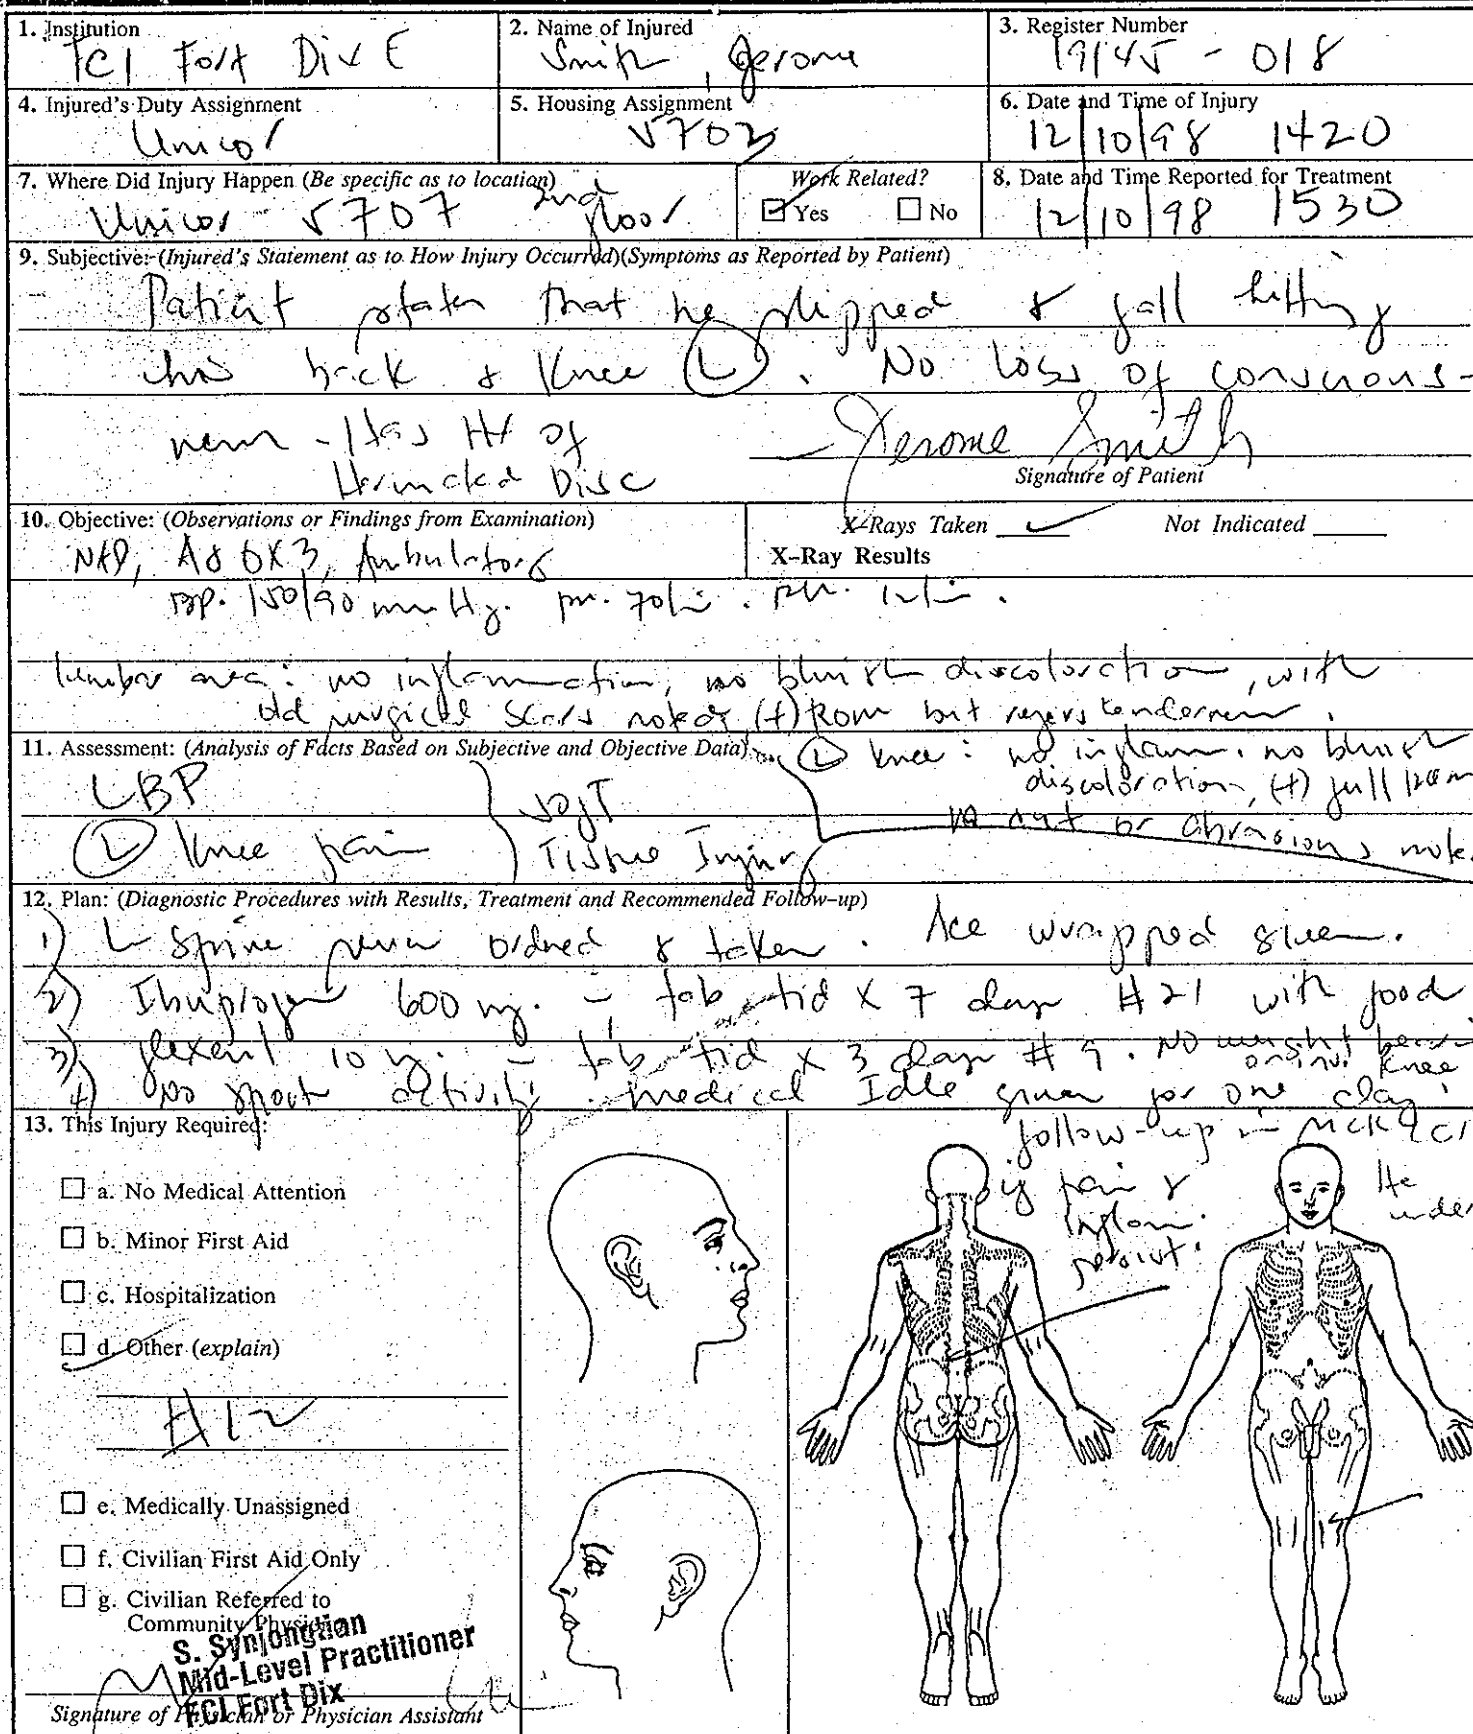 1. Institution
FCI Fort Dix E
2. Name of Injured
Smith, Jerome
3. Register Number
19145-018
4. Injured's Duty Assignment
Unicor
5. Housing Assignment
5702
6. Date and Time of Injury
12/10/98 1420
7. Where Did Injury Happen (Be specific as to location)
Unicor 5707 2nd floor
Work Related?
Yes No
8. Date and Time Reported for Treatment
12/10/98 1530
9. Subjective: (Injured's Statement as to How Injury Occurred)(Symptoms as Reported by Patient)
Patient states that he slipped & fall hitting
his back & Knee (L). No loss of conscious-
ness - Has Hx of
Herniated Disc
Jerome Smith
Signature of Patient
10. Objective: (Observations or Findings from Examination)
NAD, A&OX3, Ambulatory
X-Rays Taken Not Indicated
X-Ray Results
BP. 150/90 mmHg.
lumbar area: no inflammation, no bluish discoloration, with
old surgical scars noted, (+) ROM but tenderness.
11. Assessment: (Analysis of Facts Based on Subjective and Objective Data)
(L) knee: no inflam. no bluish
discoloration, (+) full ROM
no cut or abrasions note
LBP
(L) Knee pain
Soft
Tissue Injury
12. Plan: (Diagnostic Procedures with Results, Treatment and Recommended Follow-up)
1) L-Spine ordred & taken. Ace wrapped given.
2) Ibuprofen 600 mg. tab tid X 7 days #21 with food
3) flexeril 10 mg. tab tid X 3 days #9. NO weight knee
4) No sport activity. medical Idle given for one day.
follow-up in sick
if pain &
inflam.
persist.
He
under
13. This Injury Required:
a. No Medical Attention
b. Minor First Aid
c. Hospitalization
d. Other (explain)
#12
e. Medically Unassigned
f. Civilian First Aid Only
g. Civilian Referred to
Community Physician
S. Synjongtian
Mid-Level Practitioner
FCI Fort Dix
Signature of Physician or Physician Assistant